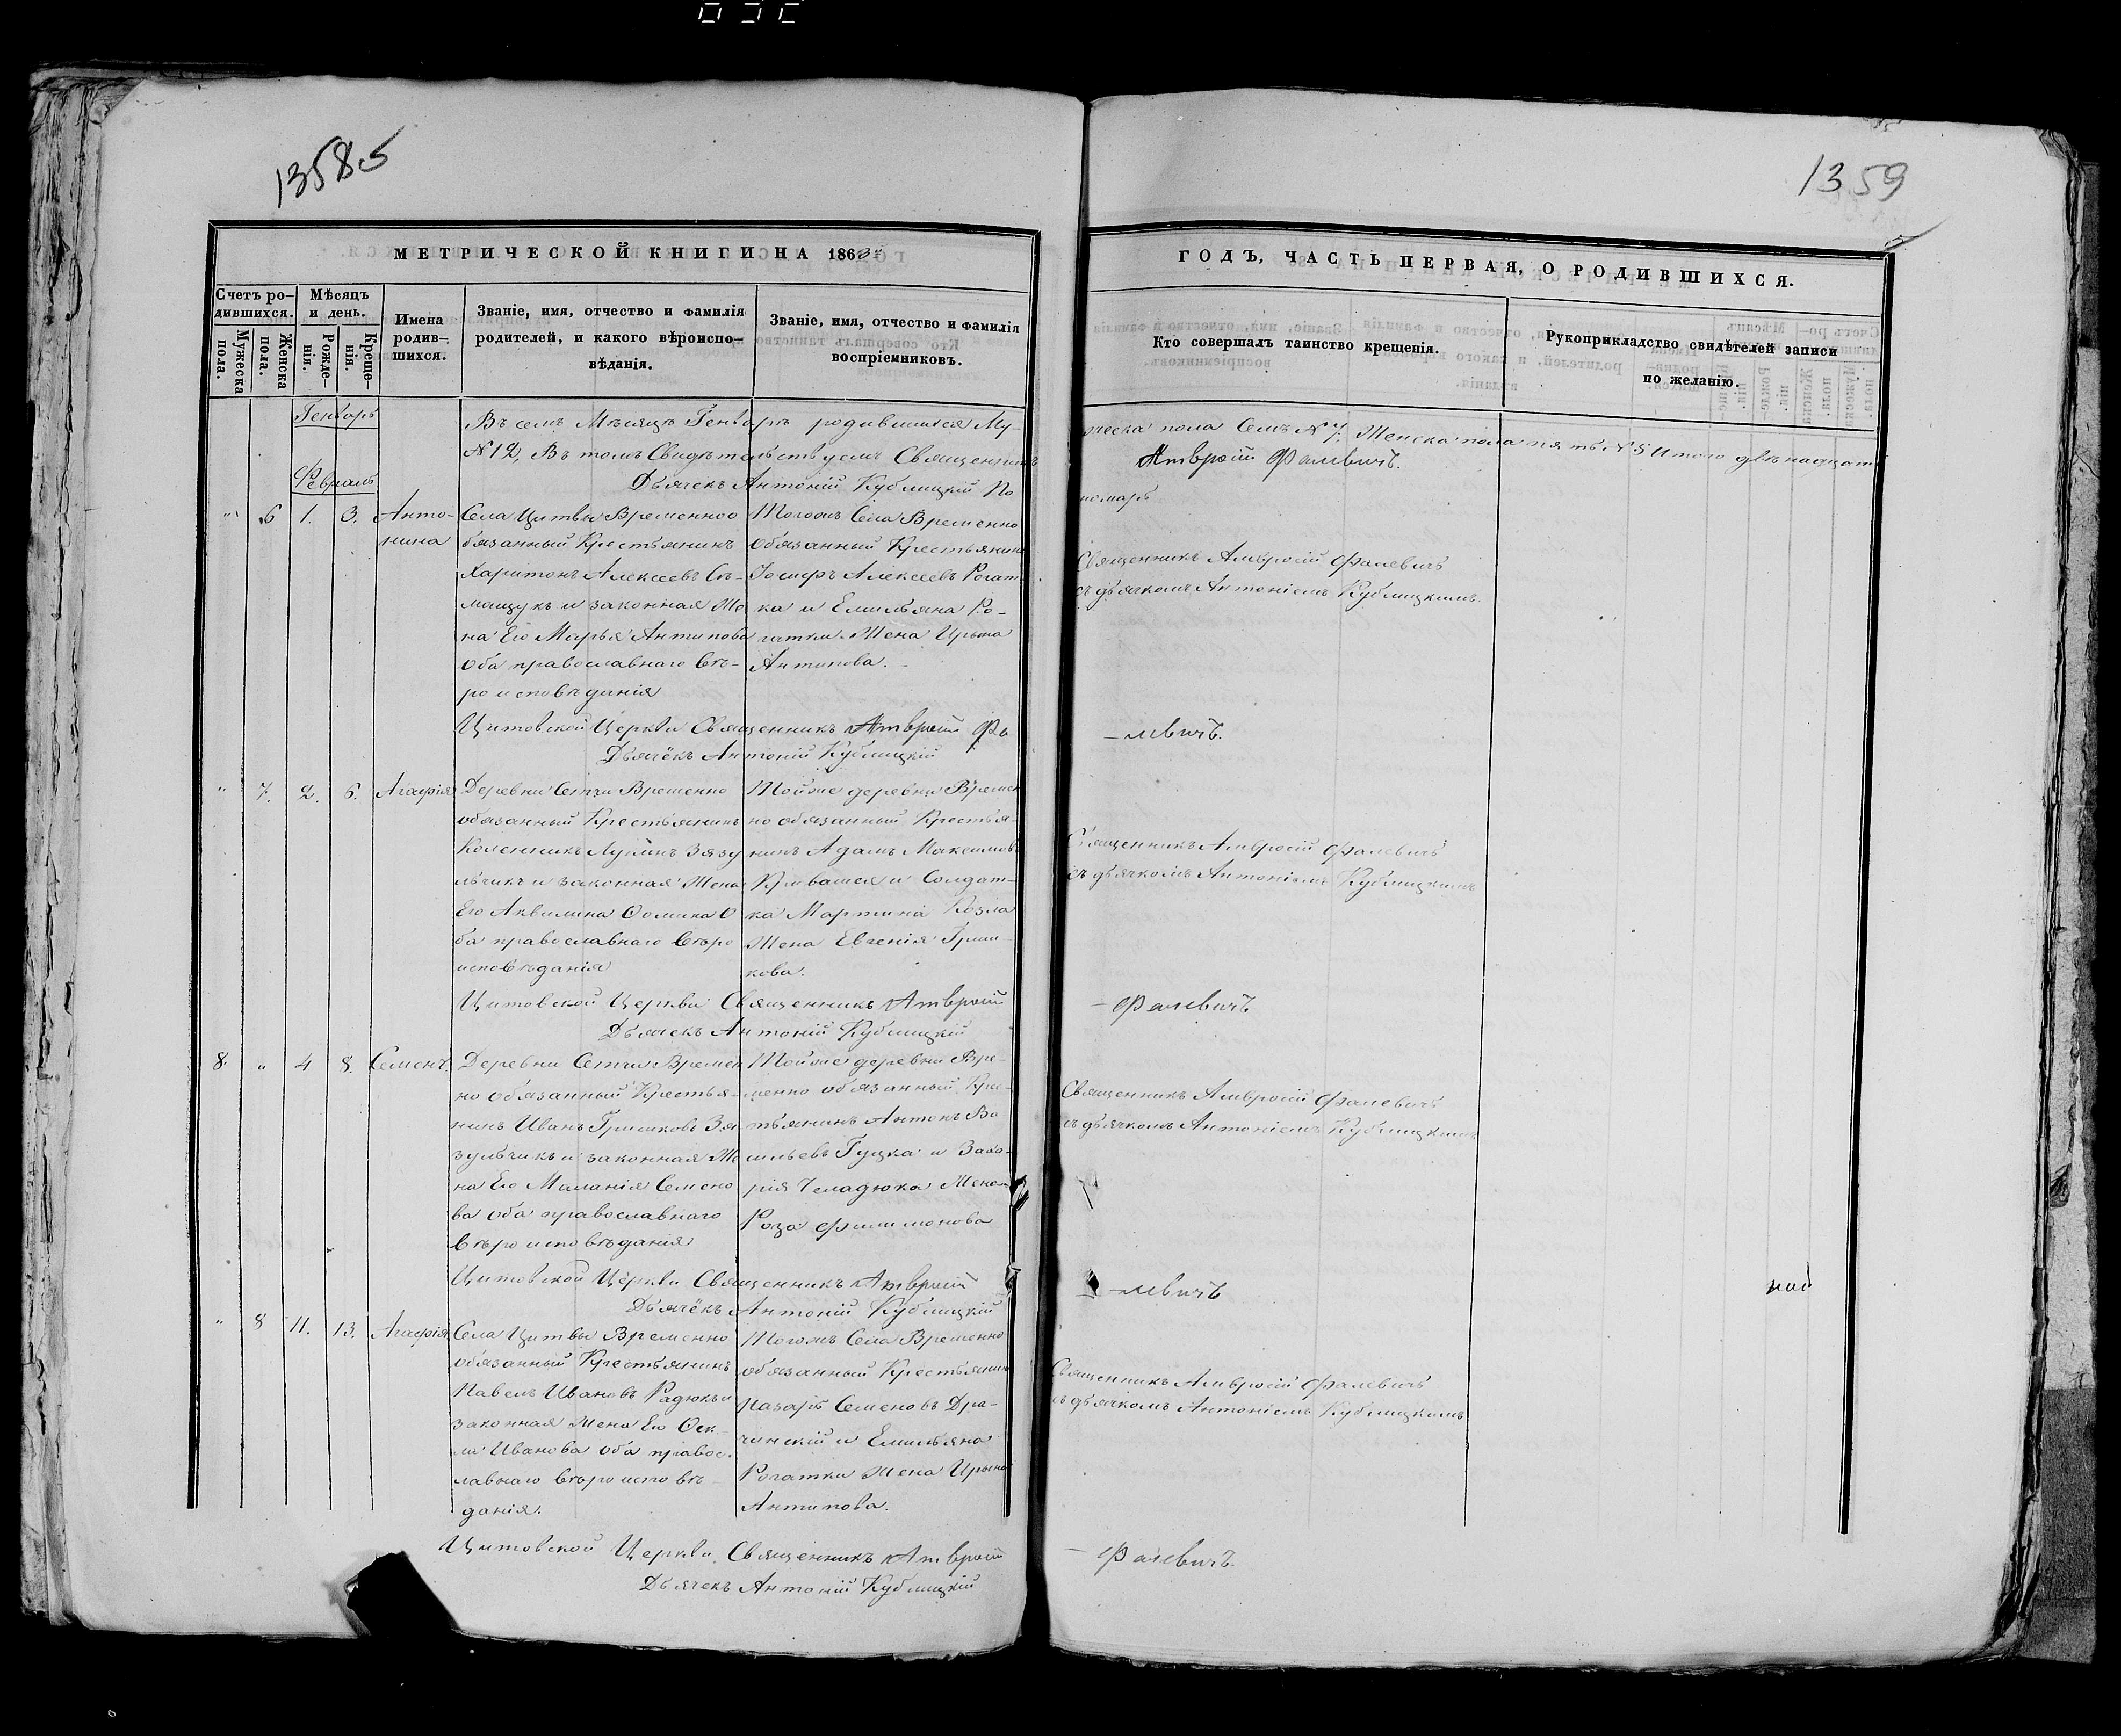 13585
1359
МЕТРИЧЕСКОЙ КНИГИ НА 1863й
ГОДЪ, ЧАСТЬ ПЕРВАЯ, О РОДИВШИХСЯ.
Счетъ ро-
дившихся.
Мужеска
пола.
Женска
пола.
Мѣсяцъ
и день.
Рожде-
нія.
Креще-
нія.
Имена
родив-
шихся.
Званіе, имя, отчество и фамилія
родителей, и какого вѣроиспо-
вѣданія.
Званіе, имя, отчество и фамилія
воспріемниковъ.
Кто совершалъ таинство крещенія.
Рукоприкладство свидѣтелей записи
по желанію.
Генварь
Въ семъ Мѣсяцѣ Генварѣ родившихся Му-
жеска пола Семъ N 7. Женска пола пять N 5 Итого двѣнадцать
N 12, Въ томъ Свидѣтельствуемъ Священникъ
Амвросій Фалевичъ.
Дьячекъ Антоній Кублицкій По
номарь
Февраль
" 6 1. 3. Анто-
нина
Села Цитвы Временно
обязанный Крестьянинъ
Харитонъ Алексеевъ Съ-
мащукъ и законная Же
на Его Марья Антипова
оба православнаго вѣ-
роисповѣданія
Тогожъ Села Временно
обязанный Крестьянинъ
Іосифъ Алексеевъ Рогат
ка и Емильяна Ро-
гатки Жена Ирына
Антипова.
Священникъ Амвросій Фалевичъ
съ дьячкомъ Антоніемъ Кублицкимъ.
Цитовской Церкви Священникъ Амвросій Фа
-левичъ.
Дьячёкъ Антоній Кублицкій
" 7. 2. 6. Агафія
Деревни Сетчи Временно
обязанный Крестьянинъ
Коленникъ Лукинъ Зязу
льчикъ и законная Жена
Его Аквилина Фомина о
ба православнаго вѣро
исповѣданія
Тойже деревни Времен
но обязанный Крестья-
нинъ Адамъ Максимовъ
Кривашея и Солдат-
ка Мартина Козла
Жена Евгенія Гриш-
кова.
Священникъ Амвросій Фалевичъ
съ дьячкомъ Антоніемъ Кублицкимъ
Цитовской Церкви Священникъ Амвросій
- Фалевичъ
Дьячекъ Антоній Кублицкій
8. " 4 8. Семенъ.
Деревни Сетчи Времен
но обязанный Крестья-
нинъ Иванъ Гришковъ Зя
зульчикъ и законная Же
на Его Маланія Семено
ва оба православнаго
вѣроисповѣданія
Тойже деревни Вре-
менно обязанный Кре-
стьянинъ Антонъ Ва
сильевъ Гуцка и Заха-
рія Челадюка Жена
Роза Филимонова
Священникъ Амвросій Фалевичъ
съ дьячкомъ Антоніемъ Кублицкимъ
Цитовской Церкви Священникъ Амвросій
-левичъ
Дьячёкъ Антоній Кублицкій
" 8 11. 13. Агафія
Села Цитвы Временно
обязанный Крестьянинъ
Павелъ Ивановъ Радюкъ и
законная жена Его Фек
ла Иванова оба правос-
лавнаго вѣроисповѣ-
данія.
Тогожъ Села Временно
обязанный Крестьянинъ
Назарій Семеновъ Дра-
чинскій и Емильяна
Рогатки Жена Ирына
Антипова.
Священникъ Амвросій Фалевичъ
съ дьячкомъ Антоніемъ Кублицкимъ
Цитовской Церкви Священникъ Амвросій
- Фалевичъ.
Дьячекъ Антоній Кублицкій